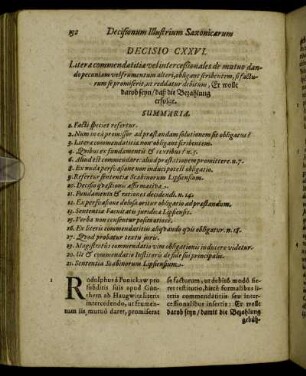 192 Decisionum Illustrium Saxonicarum
DECISIO CXXVI.
Litera commendatitia vel intercessionales de mutuo dan-
do pecuniam vel frumentum alteri, obligant scribentem, si factu-
rum se promiserit, ut reddatur debitum, Er wolle
darob seyn/ daß die Bezahlung
erfolge.
SUMMARIA.
1. Facti species refertur.
2. Num
3. Litera commendatitia non obligant scribentem.
4. Quibus ex fundamentis & textibus? n. 5.
6. Aliud est commendare: aliud præstationem promittere. n. 7.
8. Ex nuda persuasione non induci pacti obligatio.
9. Refertur sententia Scabinorum Lipsensium.
10. Decisio quæstionis affirmativa.
11. Fundamenta & rationes decidendi. n. 14.
12. Ex persuasione dolosa oritur obligatio ad præstandum.
13. Sententia Facultatis juridicæ Lipsensis.
15. Verba non censentur posita otiosè.
16. Ex literis commendatitiis aliquando quis obligatur. n. 18.
17. Quod probatur textu juris.
19. Magistratûs commendatio vim obligationis inducere videtur.
20. Uti & commendatio Institoris de suo principali.
21. Sententia Scabinorum Lipsensium.
1 Rodolphus à Ponickaw pro-
missis suis apud Gün-
therum ab Haugwitz literis
intercedendo, ut frumen-
tum sua mutuò daret, promiserat
se facturum, ut debito modo fie-
ret restitutio, hisce formalibus literis
commendatitiis seu inter-
cessionalibus insertis: Er wolle
darob seyn / damit die Bezahlung
gebüh-